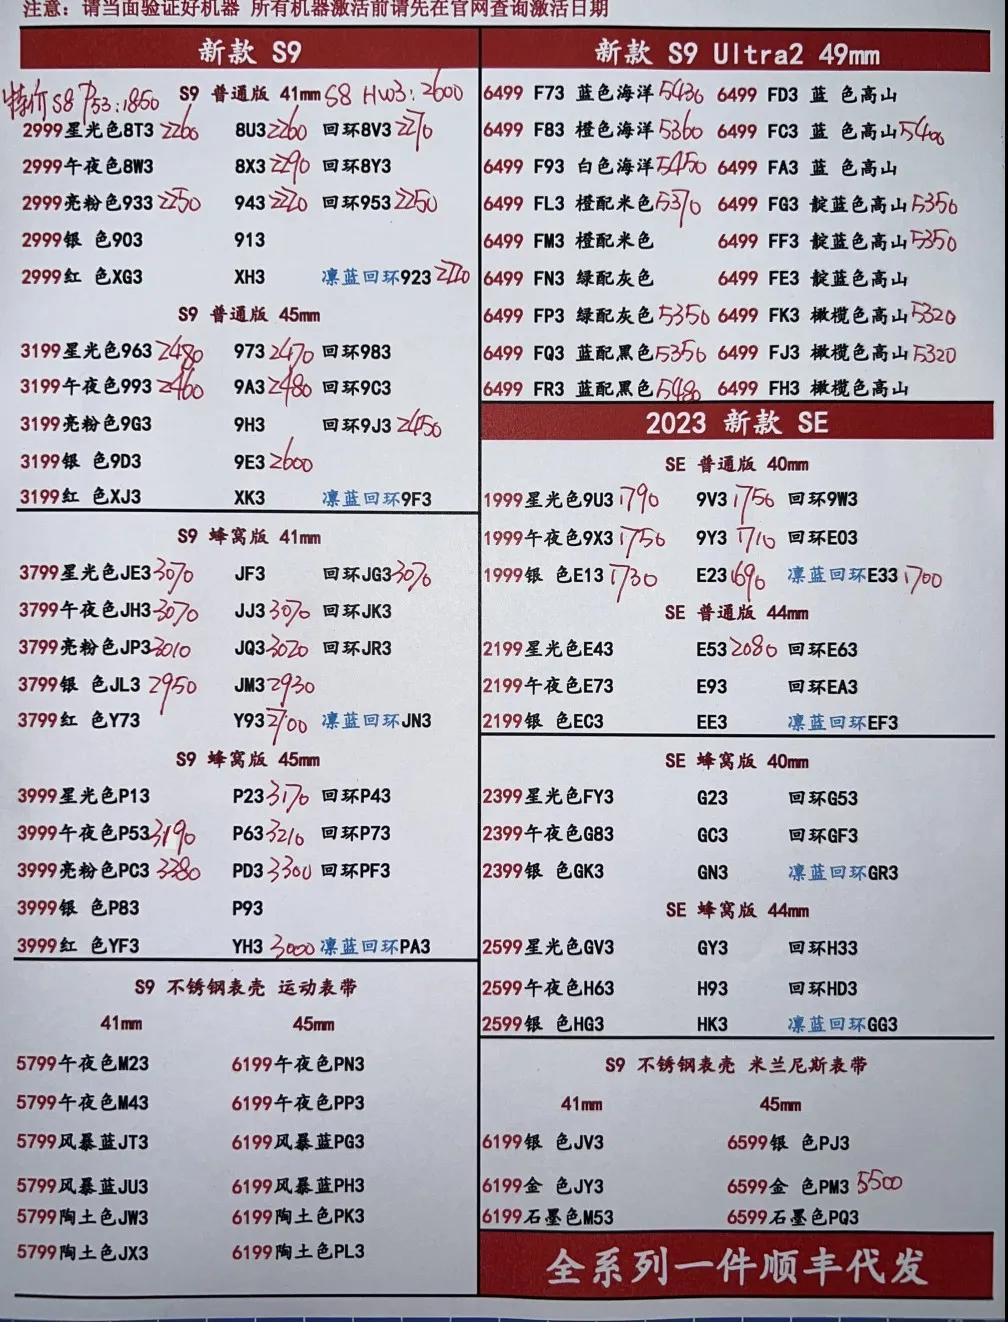 注意：请当面验证好机器 所有机器激活前请先在官网查询激活日期
新款 S9
特价 S8 P53:1850 S9 普通版 41mm S8 HW3:2600
2999星光色8T3 2260 8U3 2260 回环8V3 2270
2999午夜色8W3 8X3 2290 回环8Y3
2999亮粉色933 2250 943 2220 回环953 2250
2999银 色903 913
2999红 色XG3 XH3 凛蓝回环923 2220
S9 普通版 45mm
3199星光色963 2480 973 2470 回环983
3199午夜色993 2460 9A3 2480 回环9C3
3199亮粉色9G3 9H3 回环9J3 2450
3199银 色9D3 9E3 2600
3199红 色XJ3 XK3 凛蓝回环9F3
S9 蜂窝版 41mm
3799星光色JE3 3070 JF3 回环JG3 3070
3799午夜色JH3 3070 JJ3 3070 回环JK3
3799亮粉色JP3 3010 JQ3 3020 回环JR3
3799银 色JL3 2950 JM3 2930
3799红 色Y73 Y93 2700 凛蓝回环JN3
S9 蜂窝版 45mm
3999星光色P13 P23 3170 回环P43
3999午夜色P53 3190 P63 3210 回环P73
3999亮粉色PC3 3380 PD3 3300 回环PF3
3999银 色P83 P93
3999红 色YF3 YH3 3000 凛蓝回环PA3
S9 不锈钢表壳 运动表带
41mm 45mm
5799午夜色M23 6199午夜色PN3
5799午夜色M43 6199午夜色PP3
5799风暴蓝JT3 6199风暴蓝PG3
5799风暴蓝JU3 6199风暴蓝PH3
5799陶土色JW3 6199陶土色PK3
5799陶土色JX3 6199陶土色PL3
新款 S9 Ultra2 49mm
6499 F73 蓝色海洋 5430 6499 FD3 蓝 色高山
6499 F83 橙色海洋 5360 6499 FC3 蓝 色高山 5400
6499 F93 白色海洋 5450 6499 FA3 蓝 色高山
6499 FL3 橙配米色 5370 6499 FG3 靛蓝色高山 5350
6499 FM3 橙配米色 6499 FF3 靛蓝色高山 5350
6499 FN3 绿配灰色 6499 FE3 靛蓝色高山
6499 FP3 绿配灰色 5350 6499 FK3 橄榄色高山 5320
6499 FQ3 蓝配黑色 5350 6499 FJ3 橄榄色高山 5320
6499 FR3 蓝配黑色 5480 6499 FH3 橄榄色高山
2023 新款 SE
SE 普通版 40mm
1999星光色9U3 1790 9V3 1750 回环9W3
1999午夜色9X3 1750 9Y3 1710 回环E03
1999银 色E13 1730 E23 1690 凛蓝回环E33 1700
SE 普通版 44mm
2199星光色E43 E53 2080 回环E63
2199午夜色E73 E93 回环EA3
2199银 色EC3 EE3 凛蓝回环EF3
SE 蜂窝版 40mm
2399星光色FY3 G23 回环G53
2399午夜色G83 GC3 回环GF3
2399银 色GK3 GN3 凛蓝回环GR3
SE 蜂窝版 44mm
2599星光色GV3 GY3 回环H33
2599午夜色H63 H93 回环HD3
2599银 色HG3 HK3 凛蓝回环GG3
S9 不锈钢表壳 米兰尼斯表带
41mm 45mm
6199银 色JV3 6599银 色PJ3
6199金 色JY3 6599金 色PM3 5500
6199石墨色M53 6599石墨色PQ3
全系列一件顺丰代发